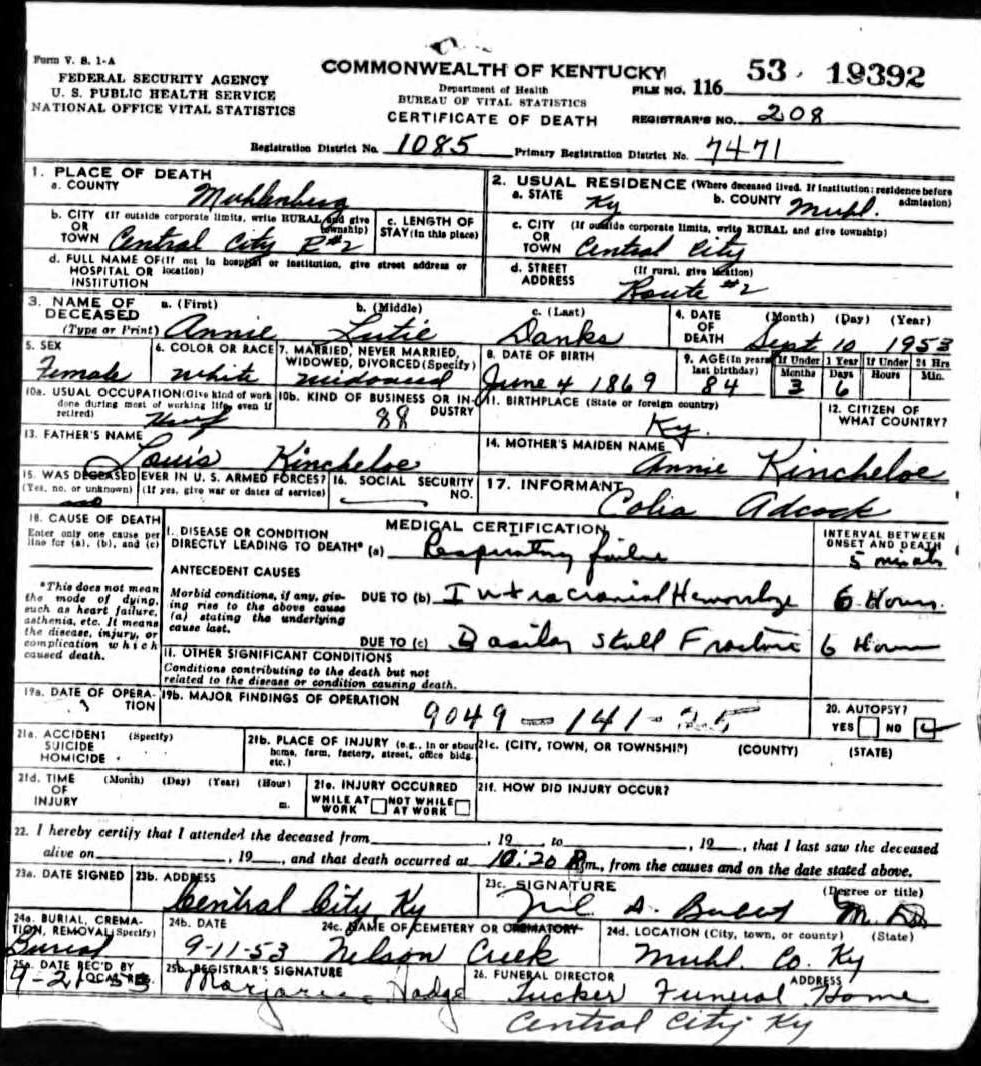 Form V. S. 1-A
FEDERAL SECURITY AGENCY
U. S. PUBLIC HEALTH SERVICE
NATIONAL OFFICE VITAL STATISTICS
COMMONWEALTH OF KENTUCKY
Department of Health
BUREAU OF VITAL STATISTICS
CERTIFICATE OF DEATH
FILE NO. 116 53 19392
REGISTRAR'S NO. 208
Registration District No. 1085 Primary Registration District No. 7471
1. PLACE OF DEATH
a. COUNTY Muhlenberg
2. USUAL RESIDENCE (Where deceased lived. If institution: residence before admission)
a. STATE Ky b. COUNTY Muhl.
b. CITY (If outside corporate limits, write RURAL and give township)
OR
TOWN Central City R#2
c. LENGTH OF STAY (in this place)
c. CITY (If outside corporate limits, write RURAL and give township)
OR
TOWN Central City
d. FULL NAME OF (If not in hospital or institution, give street address or location)
HOSPITAL OR
INSTITUTION
d. STREET ADDRESS (If rural, give location)
Route #2
3. NAME OF DECEASED (Type or Print)
a. (First) Annie b. (Middle) Lutie c. (Last) Danks
4. DATE OF DEATH (Month) (Day) (Year)
Sept 10 1953
5. SEX
Female
6. COLOR OR RACE
White
7. MARRIED, NEVER MARRIED, WIDOWED, DIVORCED (Specify)
widowed
8. DATE OF BIRTH
June 4 1869
9. AGE (In years last birthday) 84
If Under 1 Year Months 3 Days 6
If Under 24 Hrs Hours Min.
10a. USUAL OCCUPATION (Give kind of work done during most of working life, even if retired)
10b. KIND OF BUSINESS OR INDUSTRY
88
11. BIRTHPLACE (State or foreign country)
Ky.
12. CITIZEN OF WHAT COUNTRY?
13. FATHER'S NAME
Louis Kincheloe
14. MOTHER'S MAIDEN NAME
Annie Kincheloe
15. WAS DECEASED EVER IN U. S. ARMED FORCES?
(Yes, no, or unknown) (If yes, give war or dates of service)
no
16. SOCIAL SECURITY NO.
17. INFORMANT
Colia Adcock
18. CAUSE OF DEATH
Enter only one cause per line for (a), (b), and (c)
MEDICAL CERTIFICATION
INTERVAL BETWEEN ONSET AND DEATH
I. DISEASE OR CONDITION
DIRECTLY LEADING TO DEATH* (a) Respiratory failure 5
*This does not mean the mode of dying, such as heart failure, asthenia, etc. It means the disease, injury, or complication which caused death.
ANTECEDENT CAUSES
Morbid conditions, if any, giving rise to the above cause (a) stating the underlying cause last.
DUE TO (b) Intracranial Hemorrhage 6 Hours.
DUE TO (c) Basilar Skull Fracture 6 Hours
II. OTHER SIGNIFICANT CONDITIONS
Conditions contributing to the death but not related to the disease or condition causing death.
19a. DATE OF OPERATION
19b. MAJOR FINDINGS OF OPERATION
9049 - 141 - 25
20. AUTOPSY?
YES NO
21a. ACCIDENT (Specify)
SUICIDE
HOMICIDE
21b. PLACE OF INJURY (e.g., in or about home, farm, factory, street, office bldg. etc.)
21c. (CITY, TOWN, OR TOWNSHIP) (COUNTY) (STATE)
21d. TIME OF INJURY (Month) (Day) (Year) (Hour) m.
21e. INJURY OCCURRED
WHILE AT WORK NOT WHILE AT WORK
21f. HOW DID INJURY OCCUR?
22. I hereby certify that I attended the deceased from , 19 , to , 19 , that I last saw the deceased
alive on , 19 , and that death occurred at 10:20 P.m., from the causes and on the date stated above.
23a. DATE SIGNED
23b. ADDRESS
Central City Ky
23c. SIGNATURE (Degree or title)
M. D.
24a. BURIAL, CREMATION, REMOVAL (Specify)
Burial
24b. DATE
9-11-53
24c. NAME OF CEMETERY OR CREMATORY
Nelson Creek
24d. LOCATION (City, town, or county) (State)
Muhl. Co. Ky
25a. DATE REC'D BY LOCAL REG.
9-21-53
25b. REGISTRAR'S SIGNATURE
Hodge
26. FUNERAL DIRECTOR ADDRESS
Tucker Funeral Home
Central City Ky